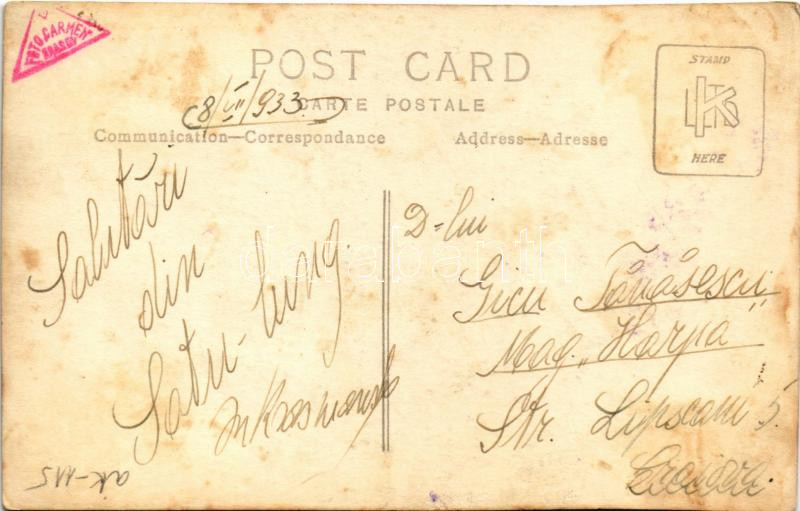 FOTO CARMEN
BRASOV
POST CARD
CARTE POSTALE
8/VII/933
Communication—Correspondance
Address—Adresse
STAMP
HERE
Salutări
din
Satu-lung.
D-lui
Gicu Tănăsescu
Mag. „Harpa"
Str. Lipscani 5.
Craiova.
ak-115
darabanth